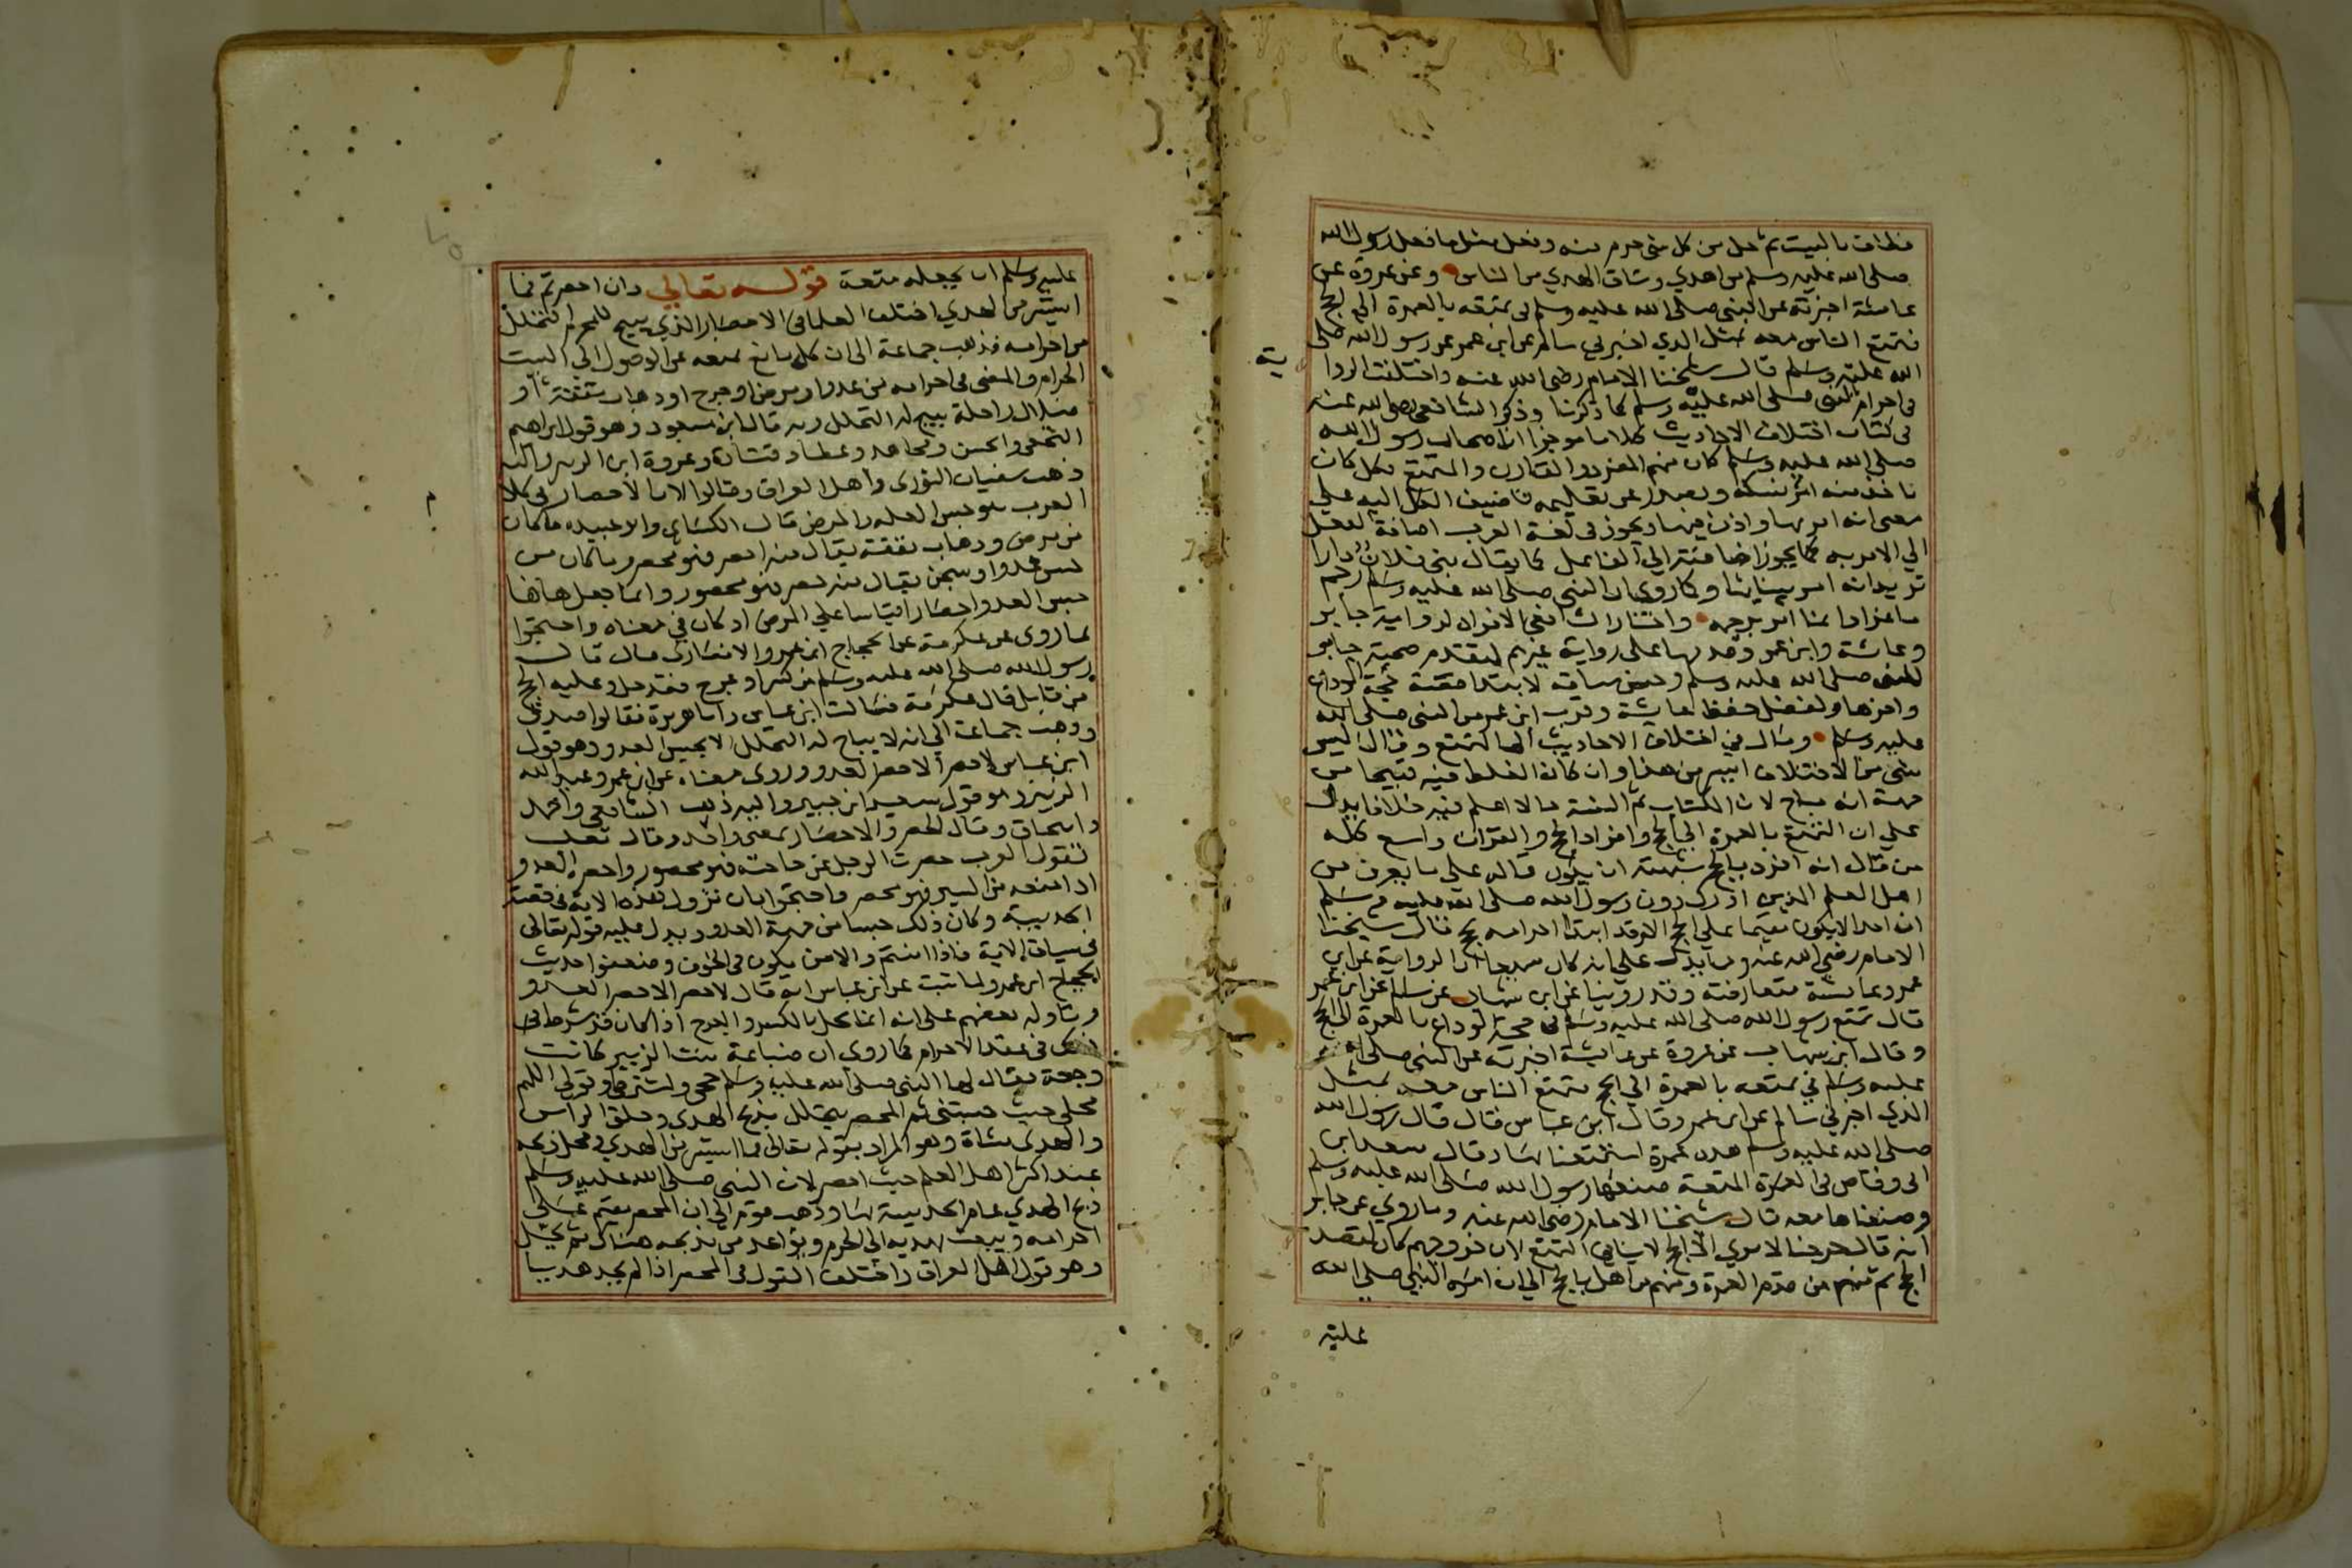 فطاف بالبيت ثم حل من كل شي حرم منه وفعل مثل ما فعل رسول الله
صلى الله عليه وسلم من اهدي وساق الهدي من الناس وعن عروة عن
عائشة اخبرته عن النبي صلى الله عليه وسلم في تمتعه بالعمرة الي الحج
فتمتع الناس معه مثل الذي اخبرني سالم عن ابن عمر عن رسول الله صلى
الله عليه وسلم قال شيخنا الامام رضي الله عنه واختلفت الروا
ية
في احرام النبي صلى الله عليه وسلم كما ذكرنا وذكر الشافعي رضي الله عنه
في كتاب اختلاف الاحاديث كلاما موجزا ان اصحاب رسول الله
صلى الله عليه وسلم كان منهم المفرد والقارن والمتمتع وكل كان
ياخذ منه امر نسكه ويصدر عن تعليمه فاضيف الكل اليه على
معنى انه امر بها واذن فيها ويجوز في لغة العرب اضافة الفعل
الي الامر به كما يجوز اضافته الي الفاعل كما يقال بنى فلان دارا
تريد انه امر ببنائها وكما روي ان النبي صلى الله عليه وسلم رجم
ماعزا وانما امر برجمه واختار الشافعي الافراد لرواية جابر
وعائشة وابن عمر وقدمها على رواية غيرهم لتقدم صحبة جابر
للنبي صلى الله عليه وسلم وحسن سياقه لابتدا قصة حجة الوداع
واخرها ولفضل حفظ عايشة وقرب ابن عمر من النبي صلى الله
عليه وسلم وقال في اختلاف الاحاديث الى التمتع وقال ليس
شي من الاختلاف ايسر من هذا وان كان الغلط فيه قبيحا من
جهة انه مباح لان الكتاب ثم السنة ثم ما لا اعلم فيه خلافا يدل
على ان التمتع بالعمرة الي الحج وافراد الحج والقران واسع كله
من قال انه افرد بالحج يشبه ان يكون قاله على ما يعرف من
اهل العلم الذين ادرك دون رسول الله صلى الله عليه وسلم
ان احدا لا يكون مقيما على الحج الا وقد ابتدا احرامه بحج قال شيخنا
الامام رضي الله عنه ومما يدل على انه كان متمتعا ان الرواية عن ابن
عمر وعايشة متعارضة وقد روينا عن ابن شهاب عن سالم عن ابن عمر
قال تمتع رسول الله صلى الله عليه وسلم في حجة الوداع بالعمرة الى الحج
وقال ابن شهاب عن عروة عن عايشة اخبرته عن النبي صلى الله
عليه وسلم في تمتعه بالعمرة الي الحج فتمتع الناس معه بمثل
الذي اخبرني سالم عن ابن عمر وقال ابن عباس قال قال رسول الله
صلى الله عليه وسلم هذه عمرة استمتعنا بها وقال سعد ابن
ابي وقاص في العمرة المتعة صنعها رسول الله صلى الله عليه وسلم
وصنعناها معه قال شيخنا الامام رضي الله عنه وما روي عن جابر
انه قال خرجنا لا ننوي الا الحج لا ينافي التمتع لان خروجهم كان لقصد
الحج ثم منهم من قدم العمرة ومنهم من اهل بالحج الي ان امره النبي صلى الله
عليه
عليه وسلم ان يجعله متعة قوله تعالي وان احصرتم فما
استيسر من الهدي اختلف العلما في الاحصار الذي يبيح للمحرم التحلل
من احرامه فذهب جماعة الى ان كل مانع يمنعه عن الوصول الي البيت
الحرام والمضي في احرامه من عدو او مرض او جرح او ذهاب نفقة او
ضلال راحلة يبيح له التحلل وبه قال ابن مسعود وهو قول ابراهيم
النخعي والحسن ومجاهد وعطا وقتادة وعروة ابن الزبير واليه
ذهب سفيان الثوري واهل العراق وقالوا لان الاحصار في كلام
العرب هو حبس العلة والمرض قال الكسائي وابو عبيده ما كان
من مرض وذهاب نفقة يقال منه احصر فهو محصر وما كان من
حبس عدو او سجن يقال منه حصر فهو محصور وانما جعل هاهنا
حبس العدو احصارا قياسا علي المرض اذ كان في معناه واحتجوا
بما روى عن عكرمة عن الحجاج ابن عمرو الانصاري قال قال
رسول الله صلى الله عليه وسلم من كسر او عرج فقد حل وعليه الحج
من قابل قال عكرمة فسالت ابن عباس وابا هريرة فقالوا صدق
وذهب جماعة الي انه لا يباح له التحلل الا بحبس العدو وهو قول
ابن عباس لا حصر الا حصر العدو وروى معناه عن ابن عمر وعبد الله
الزبير وهو قول سعيد ابن جبير واليه ذهب الشافعي واحمد
واسحاق وقال الحصر والاحصار بمعنى واحد وقال ثعلب
تقول العرب حصرت الرجل عن حاجته فهو محصور واحصره العدو
اذا منعه من السير فهو محصر واحتجوا بان نزول هذه الاية في قصة
الحديبية وكان ذلك حبسا من جهة العدو ويدل عليه قوله تعالى
في سياق الاية فاذا امنتم والامن يكون في الخوف وضعفوا حديث
الحجاج ابن عمرو لما ثبت عن ابن عباس انه قال لا حصر الا حصر العدو
وتاوله بعضهم على انه انما يحل بالكسر والعرج اذا كان قد شرط في
ذلك في عقد الاحرام كما روى ان ضباعة بنت الزبير كانت
وجعة فقال لها النبي صلى الله عليه وسلم حجي واشترطي وقولي اللهم
محلي حيث حبستني ثم المحصر يتحلل بذبح الهدى وحلق الراس
والهدى شاة وهو المراد بقوله تعالى فما استيسر من الهدي ومحل ذبحه
عند اكثر اهل العلم حيث احصر لان النبي صلى الله عليه وسلم
ذبح الهدي عام الحديبية بها وذهب قوم الى ان المحصر يقيم على
احرامه ويبعث بهديه الى الحرم ويواعد من يذبحه هناك ثم يحل
وهو قول اهل العراق واختلف القول في المحصر اذا لم يجد هديا